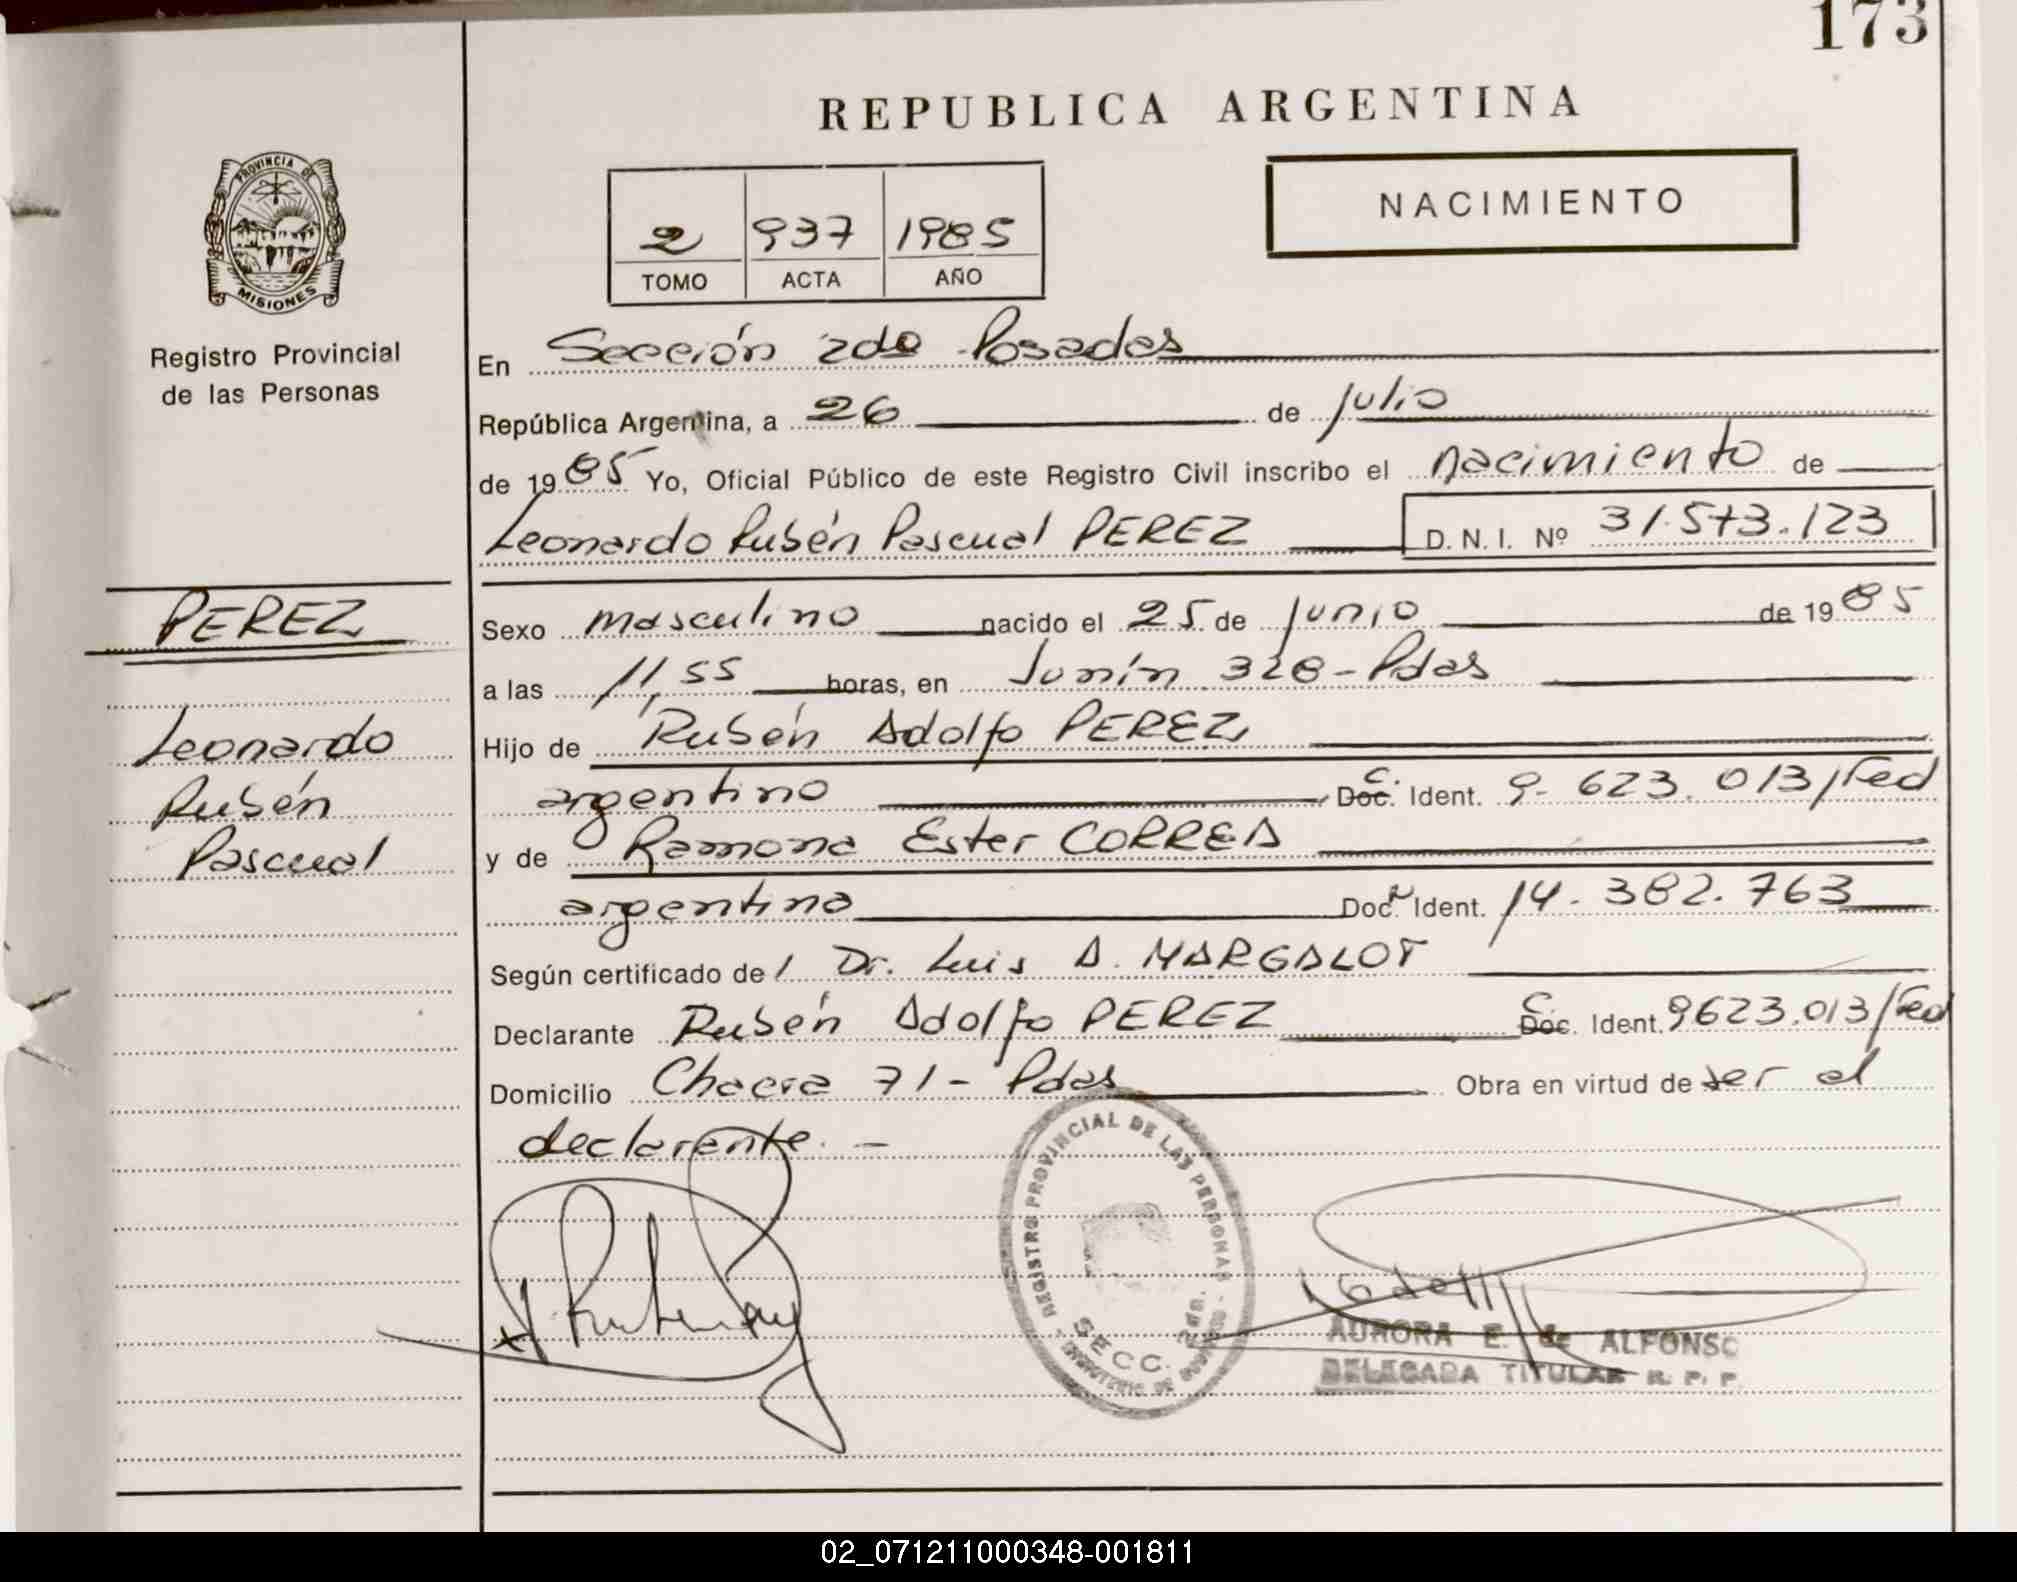 173
REPUBLICA ARGENTINA
PROVINCIA DE
MISIONES
Registro Provincial
de las Personas
NACIMIENTO
2 937 1985
TOMO ACTA AÑO
En Sección 2da Posadas
República Argentina, a 26 de Julio
de 1985 Yo, Oficial Público de este Registro Civil inscribo el nacimiento de
Leonardo Rubén Pascual PEREZ D. N. I. Nº 31.573.123
PEREZ
Leonardo
Rubén
Pascual
Sexo masculino nacido el 25 de Junio de 1985
a las 11,55 horas, en Junín 328 - Pdas
Hijo de Rubén Adolfo PEREZ
argentino C. Doc. Ident. 9.623.013/Fed
y de Ramona Ester CORREA
argentina Doc. Ident. 14.382.763
Según certificado de / Dr. Luis A. MARGALOT
Declarante Rubén Adolfo PEREZ C. Doc. Ident. 9623.013/Fed
Domicilio Chacra 71 - Pdas Obra en virtud de ser el
declarante. -
REGISTRO PROVINCIAL DE LAS PERSONAS
SECC. 2da.
MINISTERIO DE GOBIERNO
AURORA E. de ALFONSO
DELEGADA TITULAR R. P. P.
02_071211000348-001811